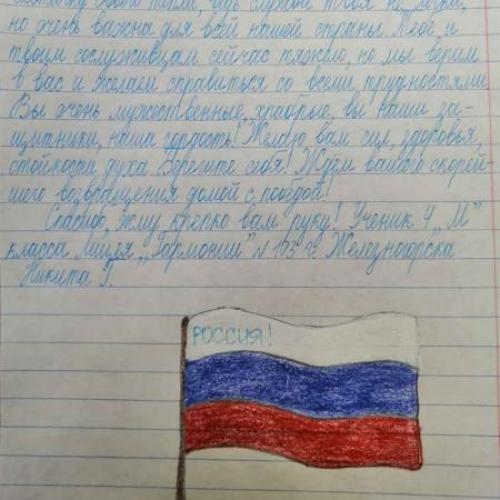 твоя не легка,
но очень важна для всей нашей страны. Тебе и
твоим сослуживцам сейчас тяжело, но мы верим
в вас и желаем справиться со всеми трудностями.
Вы очень мужественные, храбрые, вы наши за-
щитники, наша гордость! Желаю вам сил, здоровья,
стойкости духа. Берегите себя! Ждём вашего скорей-
шего возвращения домой с победой!
Спасибо, жму крепко вам руку! Ученик 4 „М"
класса Лицея „Гармония" № 103 г. Железногорска
Никита Г.
РОССИЯ!